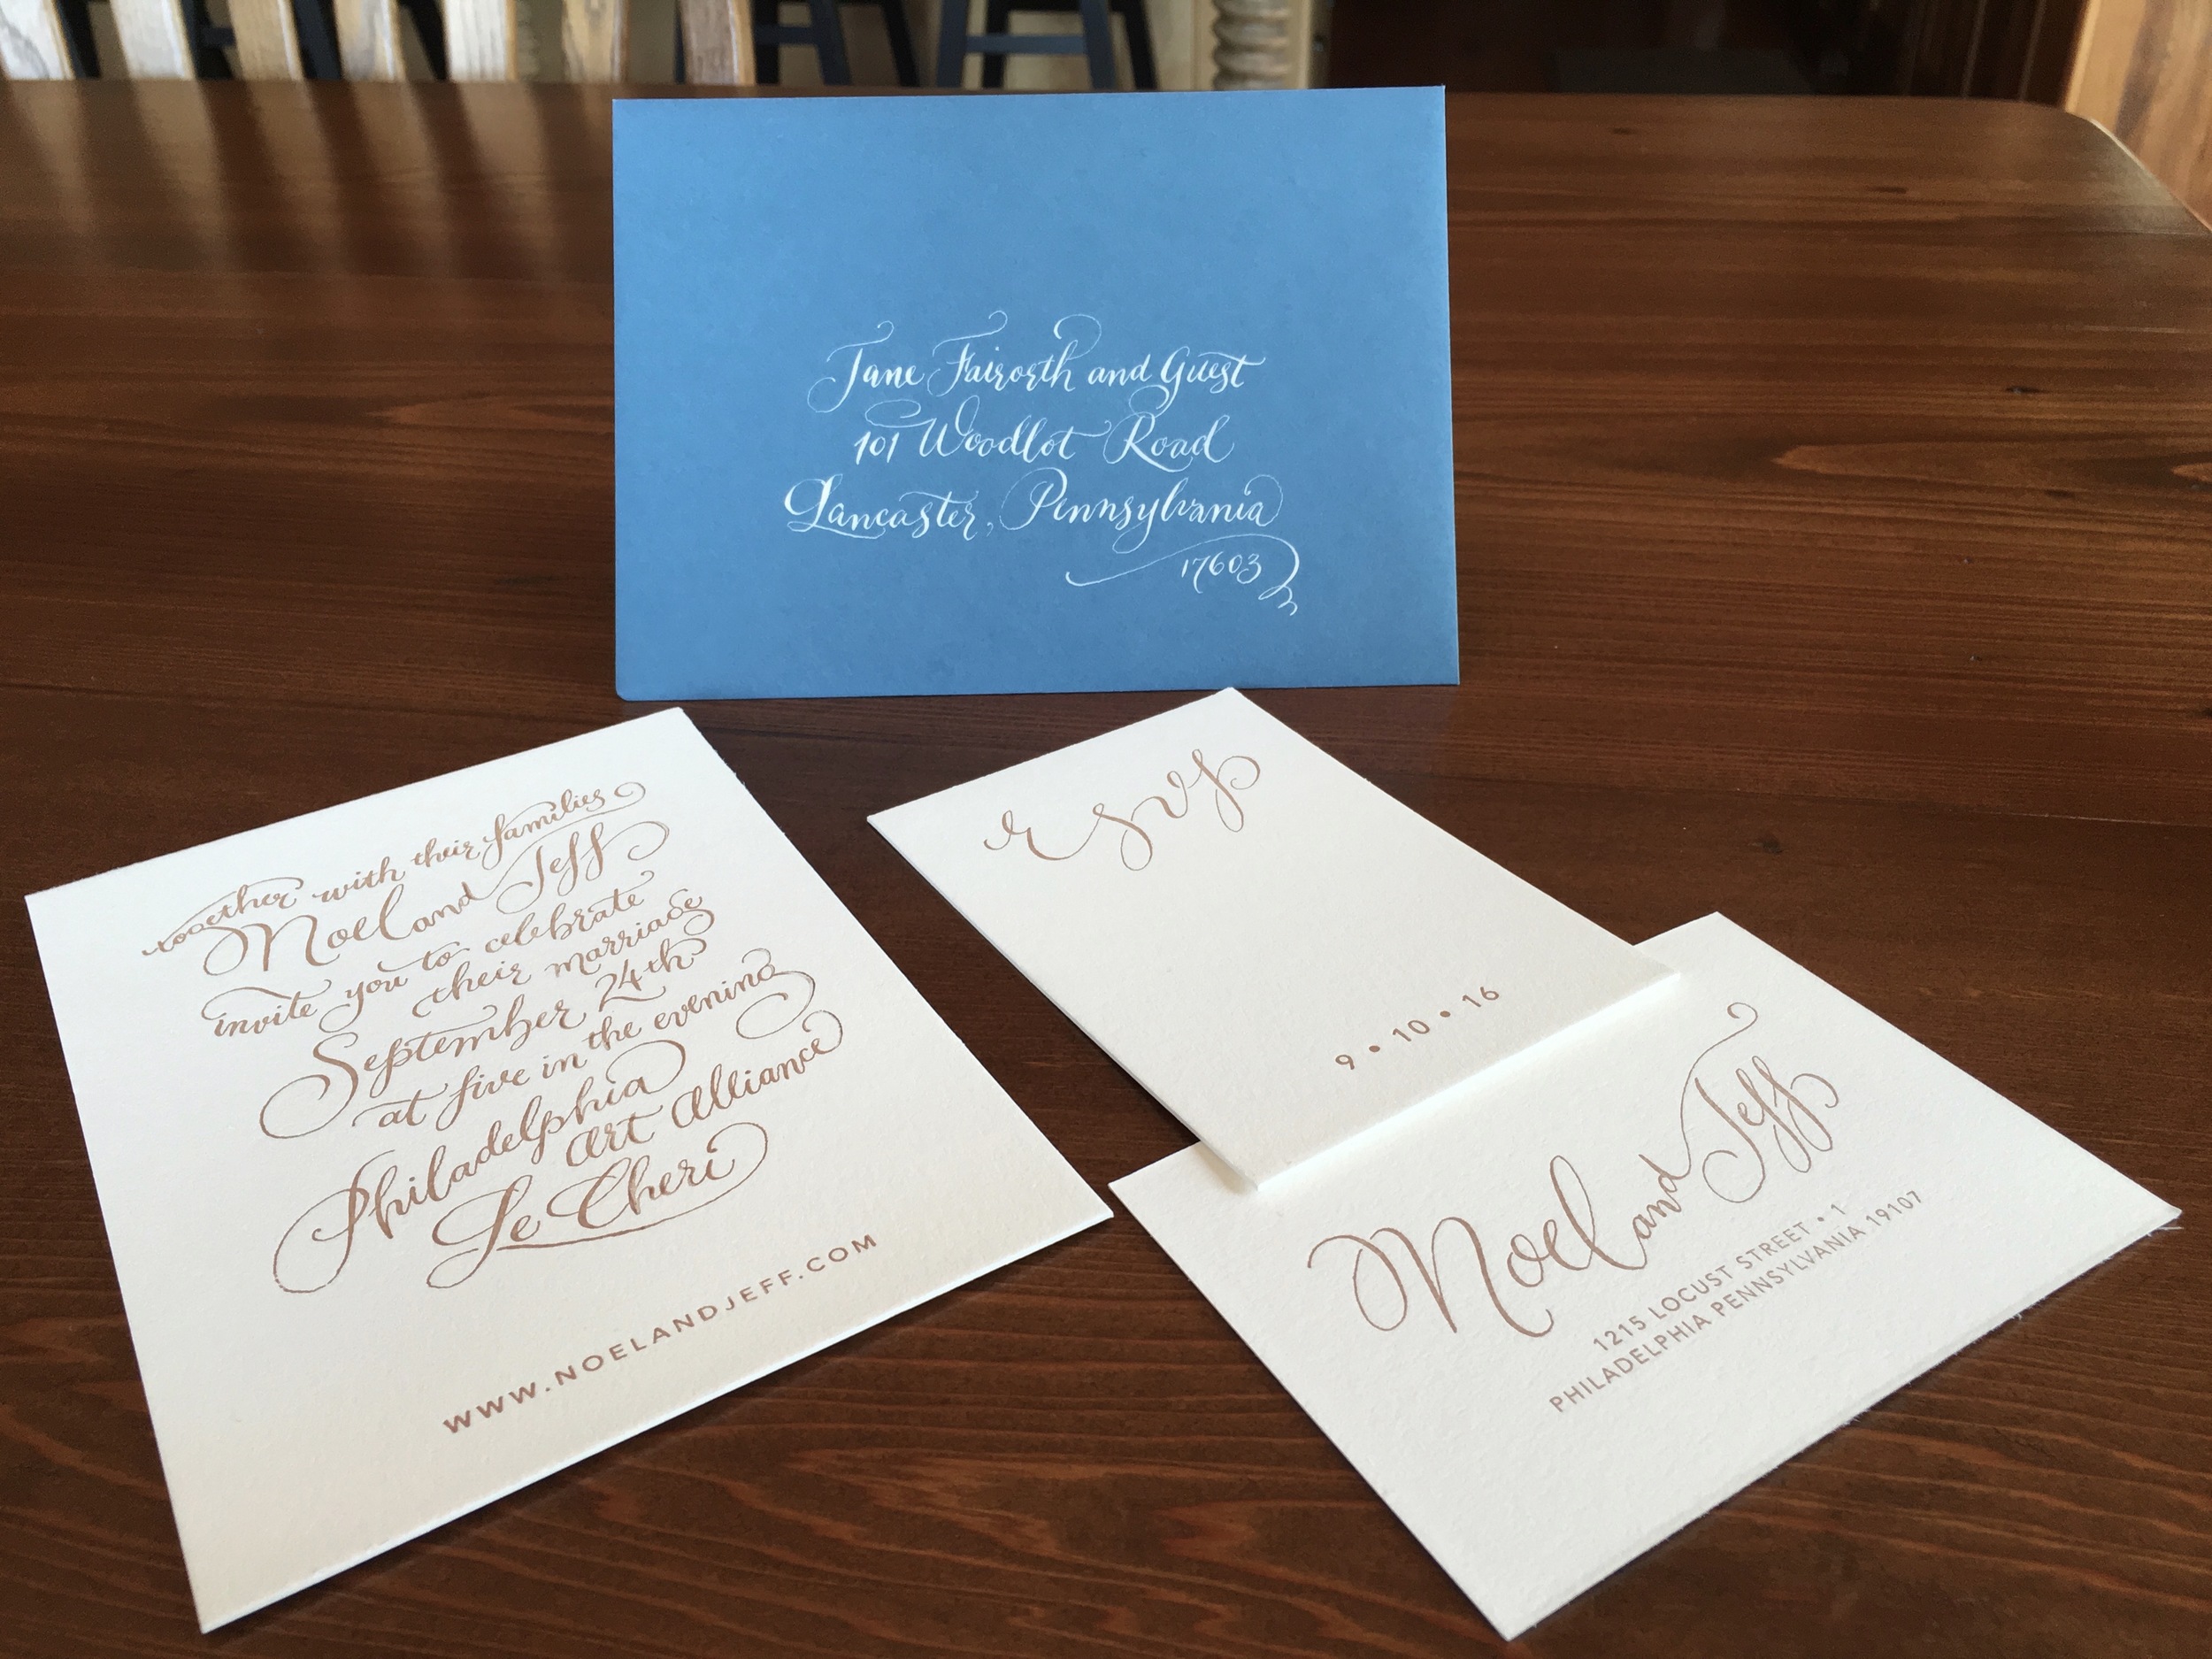 Jane Fairorth and Guest
101 Woodlot Road
Lancaster, Pennsylvania
17603
together with their families
Noel and Jeff
invite you to celebrate
their marriage
September 24th
at five in the evening
Philadelphia
Art Alliance
Le Cheri
WWW.NOELANDJEFF.COM
rsvp
9 • 10 • 16
Noel and Jeff
1215 LOCUST STREET • 1
PHILADELPHIA PENNSYLVANIA 19107